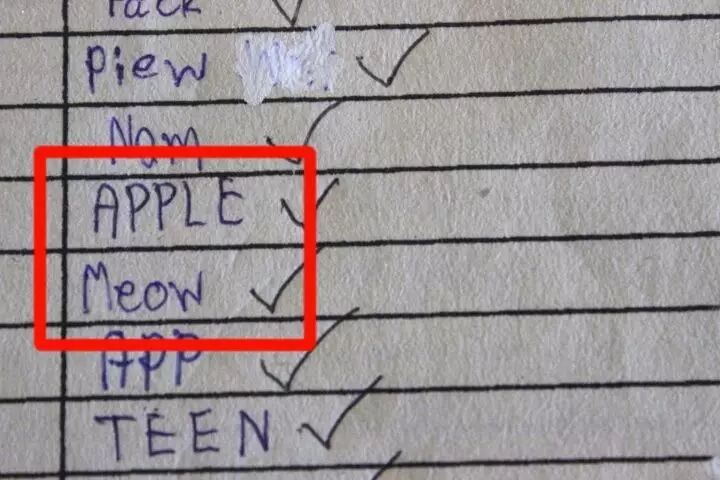 Piew
Nam
APPLE
Meow
APP
TEEN